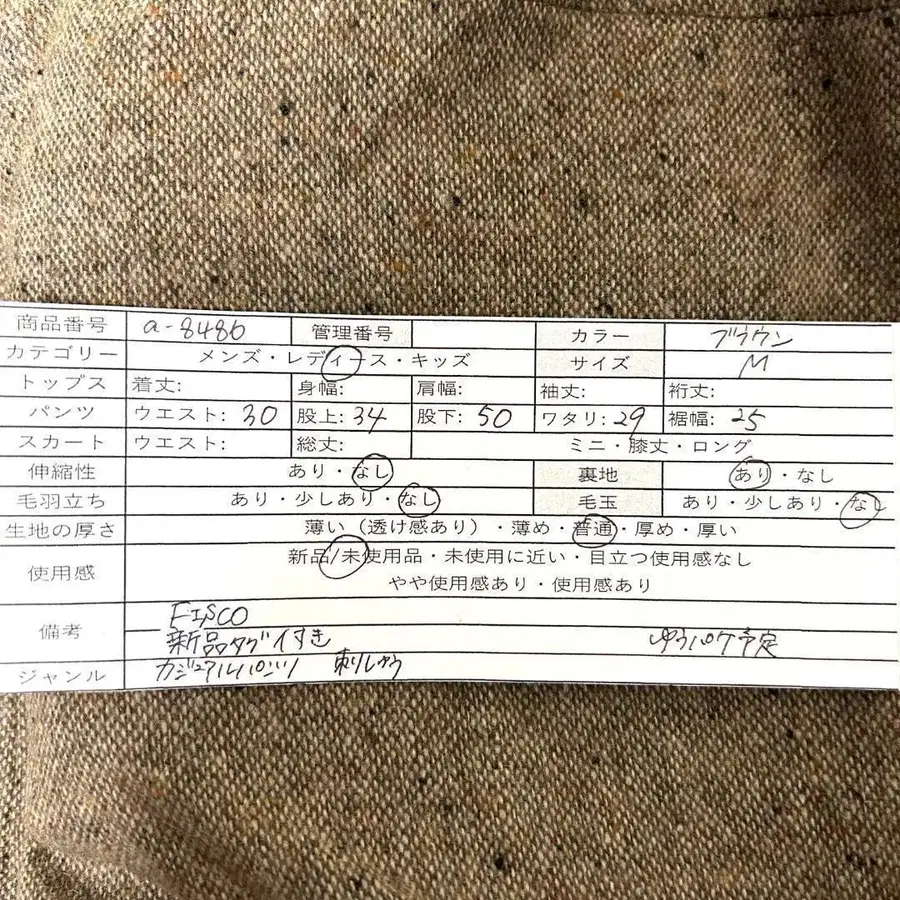 商品番号 a-8486 管理番号 カラー ブラウン
カテゴリー メンズ・レディース・キッズ サイズ M
トップス 着丈: 身幅: 肩幅: 袖丈: 裄丈:
パンツ ウエスト: 30 股上: 34 股下: 50 ワタリ: 29 裾幅: 25
スカート ウエスト: 総丈: ミニ・膝丈・ロング
伸縮性 あり・なし 裏地 あり・なし
毛羽立ち あり・少しあり・なし 毛玉 あり・少しあり・なし
生地の厚さ 薄い（透け感あり）・薄め・普通・厚め・厚い
使用感 新品/未使用品・未使用に近い・目立つ使用感なし
やや使用感あり・使用感あり
備考
新品タグ付き ゆうパケ予定
ジャンル カジュアルパンツ 刺しゅう